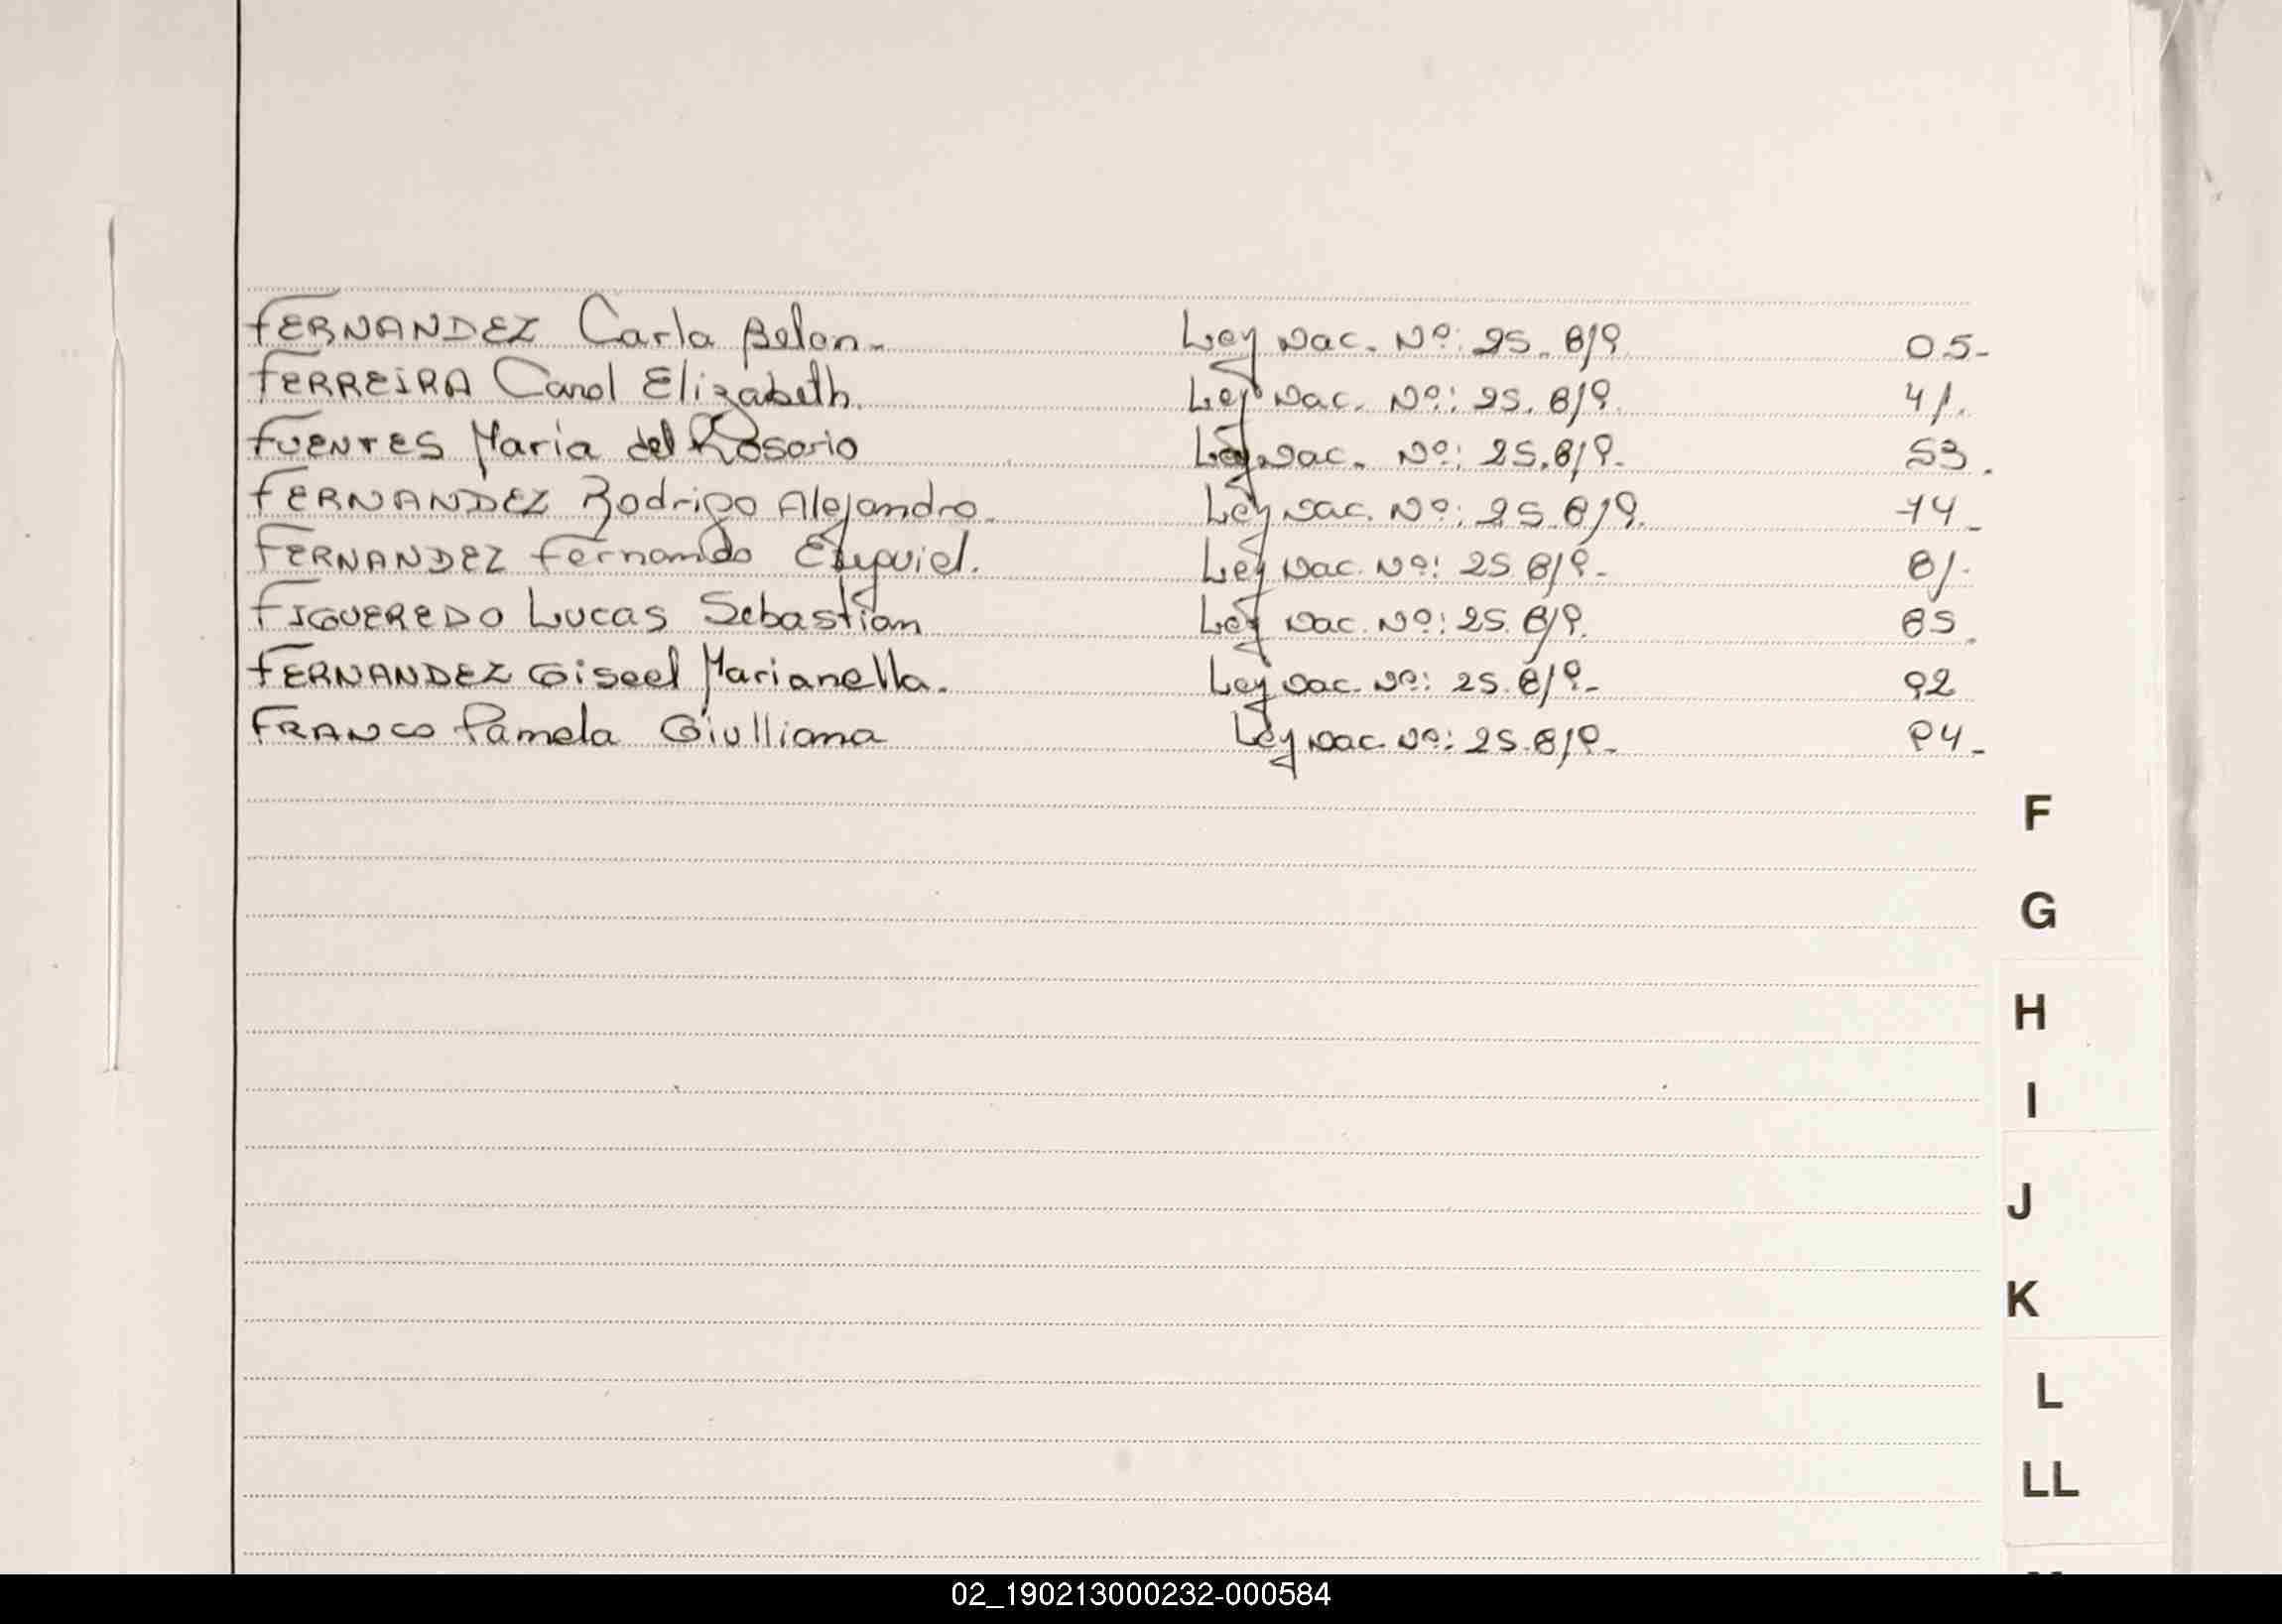 FERNANDEZ Carla Belen. Ley Nac. Nº: 25.819 05-
FERREIRA Carol Elizabeth. Ley Nac. Nº: 25.819. 41.
FUENTES Maria del Rosario Ley Nac. Nº: 25.819. 53.
FERNANDEZ Rodrigo Alejandro. Ley Nac. Nº: 25.819. 74-
FERNANDEZ Fernando Ezequiel. Ley Nac. Nº: 25 819. 81.
FIGUEREDO Lucas Sebastian Ley Nac. Nº: 25.819. 85.
FERNANDEZ Giseel Marianella. Ley Nac. Nº: 25.819- 92
FRANCO Pamela Giulliana Ley Nac. Nº: 25.819- 94-
F
G
H
I
J
K
L
LL
02_190213000232-000584